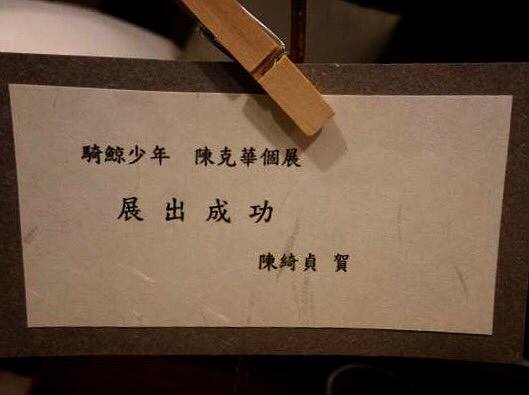 騎鯨少年 陳克華個展
展出成功
陳綺貞 賀